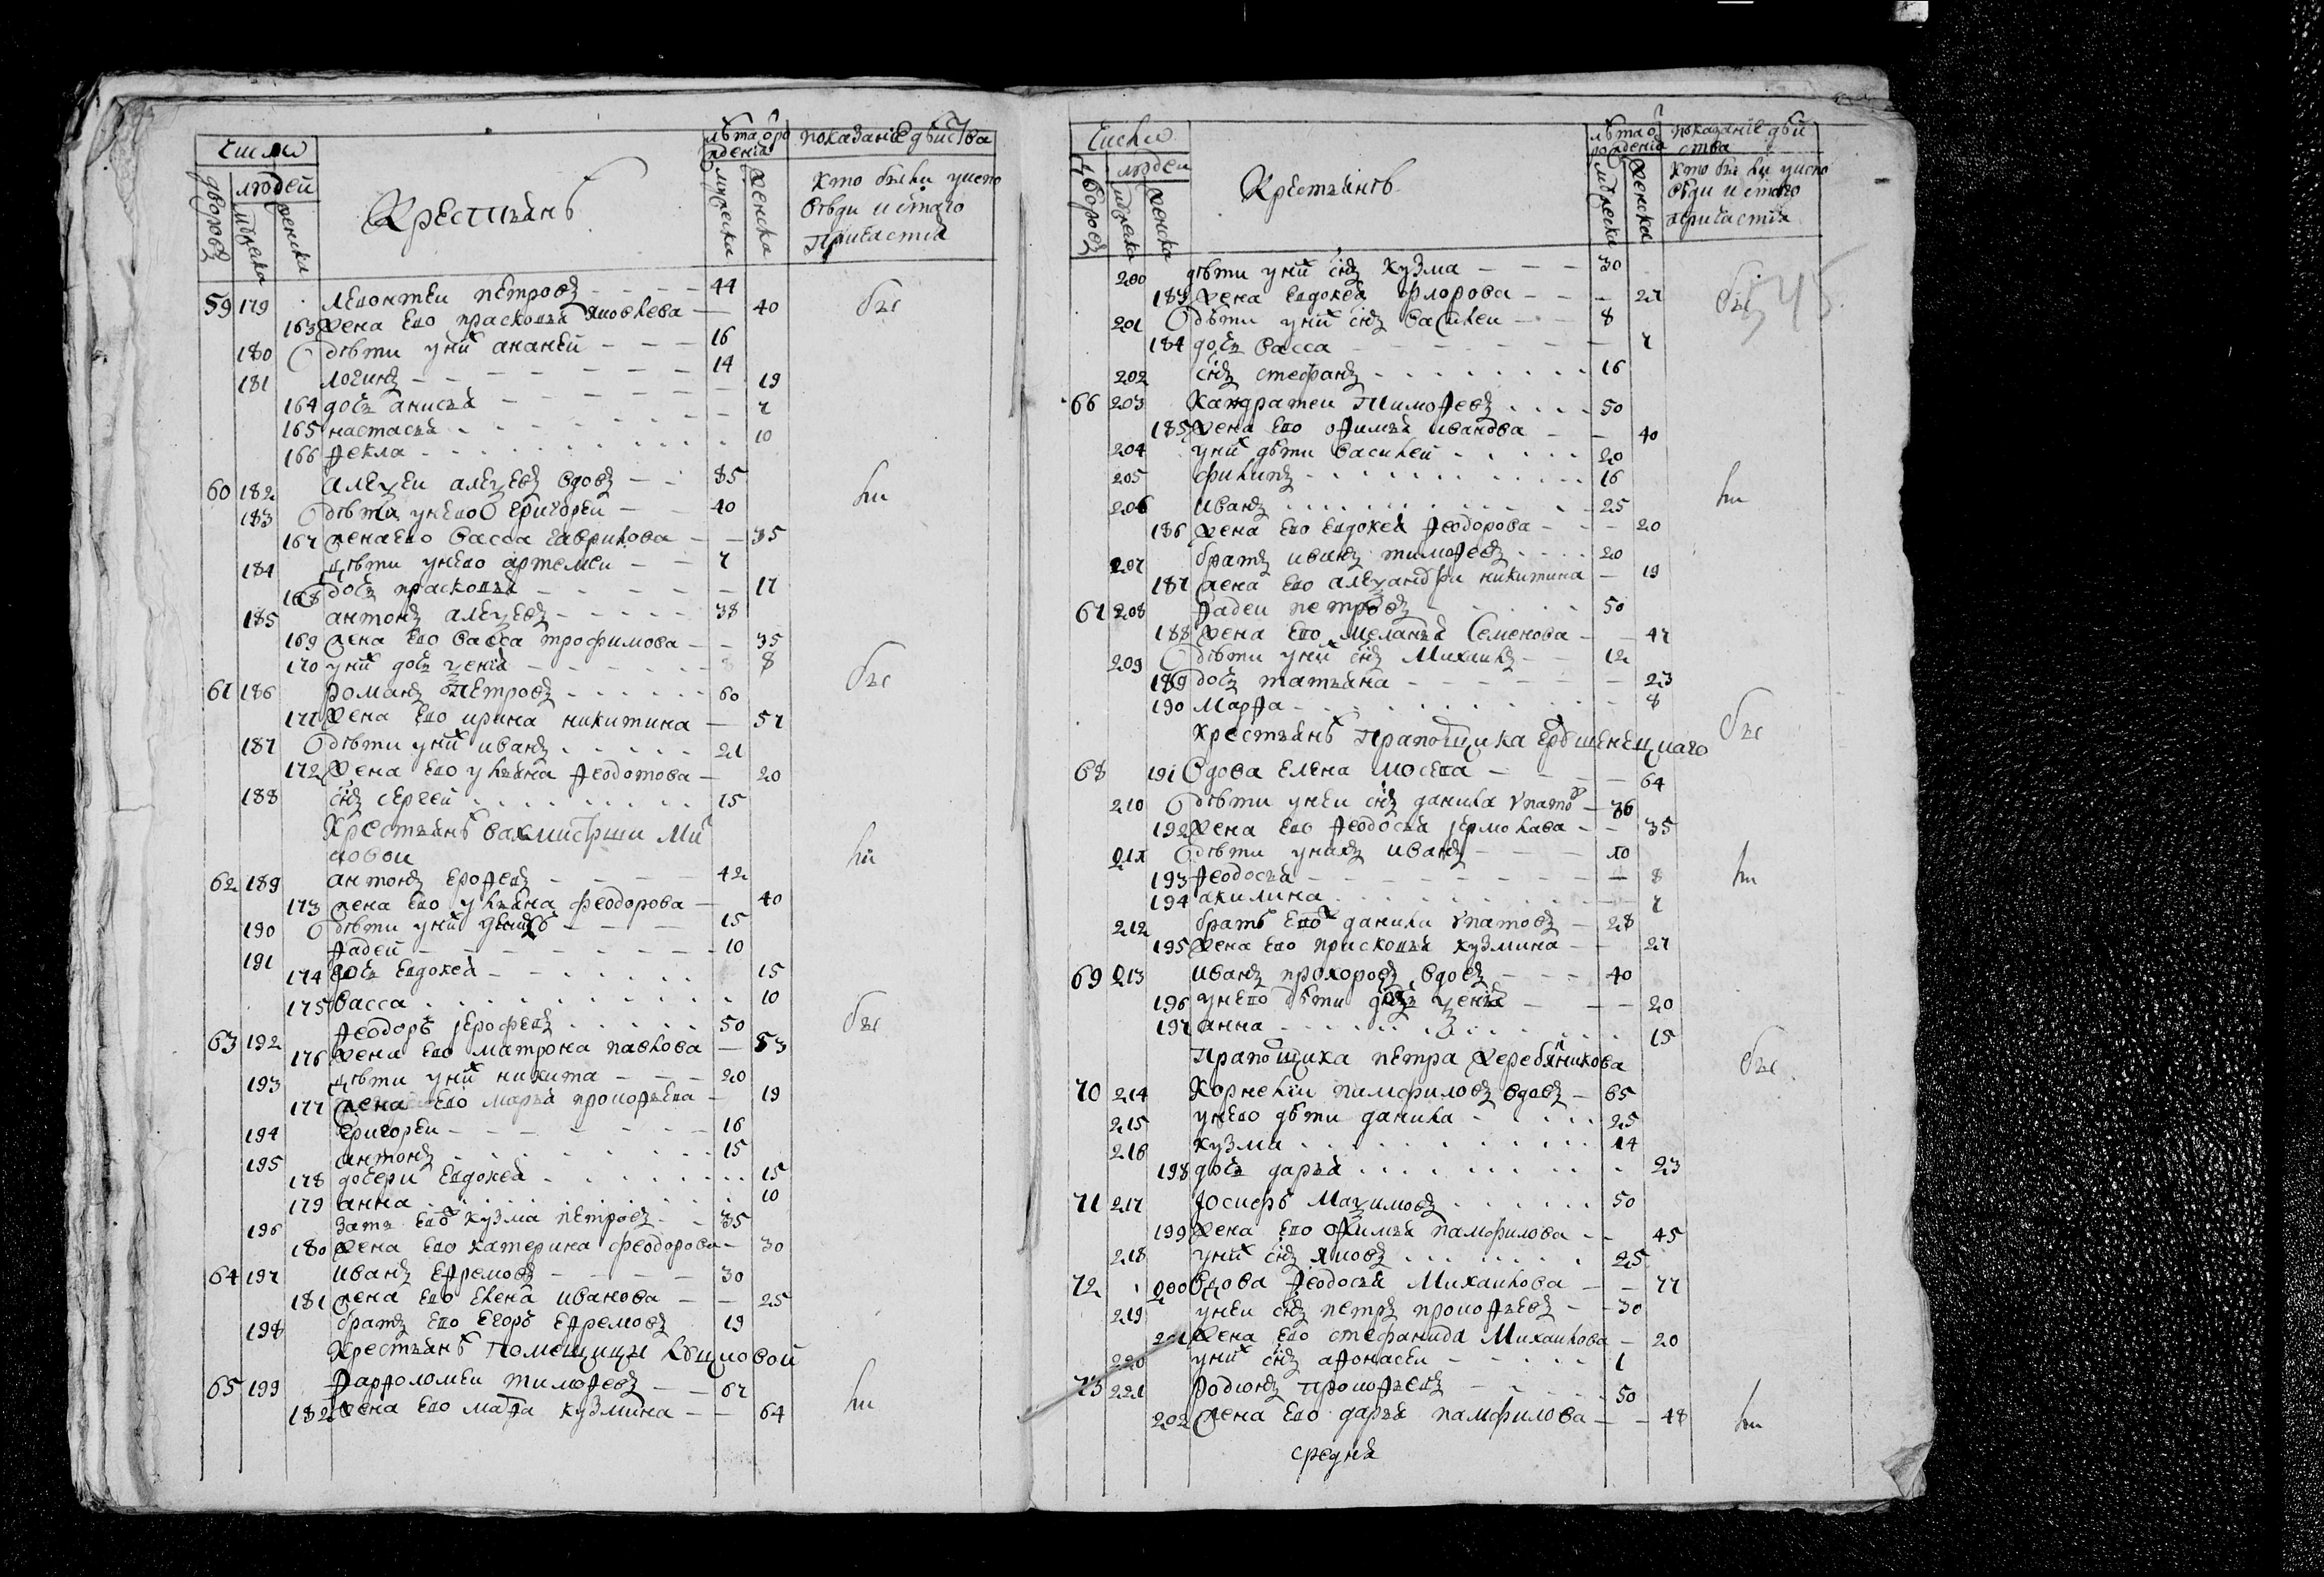 Число
дворовъ
людей
мужеска
женска
Крестьянъ
лѣта от ро
жденiя
мужеска
женска
показанiе дѣйства
Кто были у испо
вѣди и с̃таго
Причастiя
59 179 Леѡнтеи петровъ – – – – 44
163 жена ево прасковья яковлева – 40
180 дѣти у них ананьи – – – 16
181 логинъ – – – – – 14
164 дочь анисья – – – 19
165 настасья – – 7
166 ѳекла 10
60 182 алеѯеи алеѯеевъ вдовъ – – 85
183 дѣти у нево Григореи – – 40
167 жена ево васса гаврилова – – 35
184 дѣти у нево артемеи – – 7
168 дочь прасковья – – – 17
185 антонъ алеѯеевъ – – – 38
169 жена ево васса трофимова – – 35
170 у них дочь ѯенiя – – – 8
61 186 романъ петровъ 60
171 жена ево ирина никитина – 57
187 дѣти у них иванъ 21
172 жена ево ульяна ѳеодотова – 20
188 с̃нъ сергеи 15
Крестьянъ вахмистрши
62 189 антонъ ероѳеевъ – – – 42
173 жена ево ульяна феодорова – 40
190 дѣти у них – – – 15
191 ѳадеи – – – – – 10
174 дочь евдокея – – 15
175 васса 10
63 192 ѳеодоръ ерофеевъ 50
176 жена ево матрона павлова – 53
193 дѣти у них никита – – – 20
177 жена ево марья прокоѳьева – 19
194 Григореи – – – – – 16
195 антонъ 15
178 дочери евдокея 15
179 анна 10
196 зять ево кузма петровъ 35
180 жена ево катерина феодорова – 30
64 197 иванъ еѳремовъ – – – – 30
181 жена ево елена иванова – – 25
198 братъ ево егоръ еѳремовъ 19
Крестьянъ помещицы
65 199 ѳарѳоломеи тимоѳеевъ – – 67
182 жена ево марѳа кузмина – – 64
Число
дворовъ
людей
мужеска
женска
Крестьянъ
лѣта о
рожденiя
мужеска
женска
показанiе дѣй
ства
Кто были у испо
вѣди и с̃таго
причастiя
545
200 дѣти у них с̃нъ кузма – – – 30
183 жена евдокея флорова – – – 27
201 дѣти у них с̃нъ василеи – – 8
184 дочь васса – – – 7
202 с̃нъ стефанъ 16
66 203 Кандратеи тимоѳеевъ 50
185 жена ево оѳимья иванова – – 40
204 у них дѣти василеи 20
205 филипъ 16
206 иванъ 25
186 жена ево евдокея ѳеодорова – – 20
207 братъ иванъ тимоѳеевъ 20
187 жена ево алеѯандра никитина – 19
67 208 ѳадеи петровъ 50
188 жена ево меланья семенова – – 47
209 дѣти у них с̃нъ михаилъ – – 12
189 дочь татьяна – – – 23
190 марѳа – 8
Крестьянъ прапощика
68 191 вдова елена мосеева – – – 64
210 дѣти у неи с̃нъ данила ѵпатовъ – 36
192 жена ево ѳеодосья ермолаева – – 35
211 дѣти у нихъ иванъ – – – 10
193 ѳеодосья – – – 8
194 акилина 7
212 братъ ево данила ѵпатовъ – 28
195 жена ево прасковья кузмина – – 27
69 213 иванъ прохоровъ вдовъ – – – 40
196 у нево дѣти дочь ѯенiя – – – 20
197 анна 15
Прапощика петра жеребятникова
70 214 Корнелiи памфиловъ вдовъ – 65
215 у нево дѣти данила 25
216 кузма 14
198 дочь дарья 23
71 217 Iосифъ маѯимовъ 50
199 жена ево оѳимья памфилова – – 45
218 у них с̃нъ яковъ 25
72 200 вдова ѳеодосья михаилова – – 77
219 у неи с̃нъ петръ прокоѳьевъ – – 30
201 жена ево стефанида михаилова – 20
220 у них с̃нъ аѳонасеи 1
73 221 родионъ прокоѳьевъ 50
202 жена ево дарья памфилова – – 48
средня